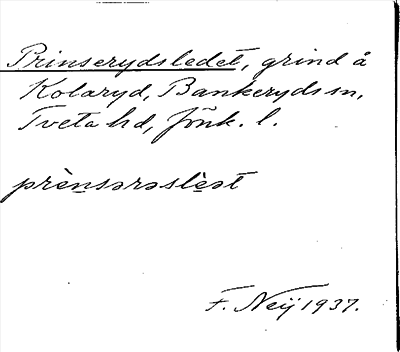 Prinserydsledet, grind å
Kolaryd, Bankeryds sn,
Tveta hd, Jönk. l.
prènsərəslèət
F. Neij 1937.